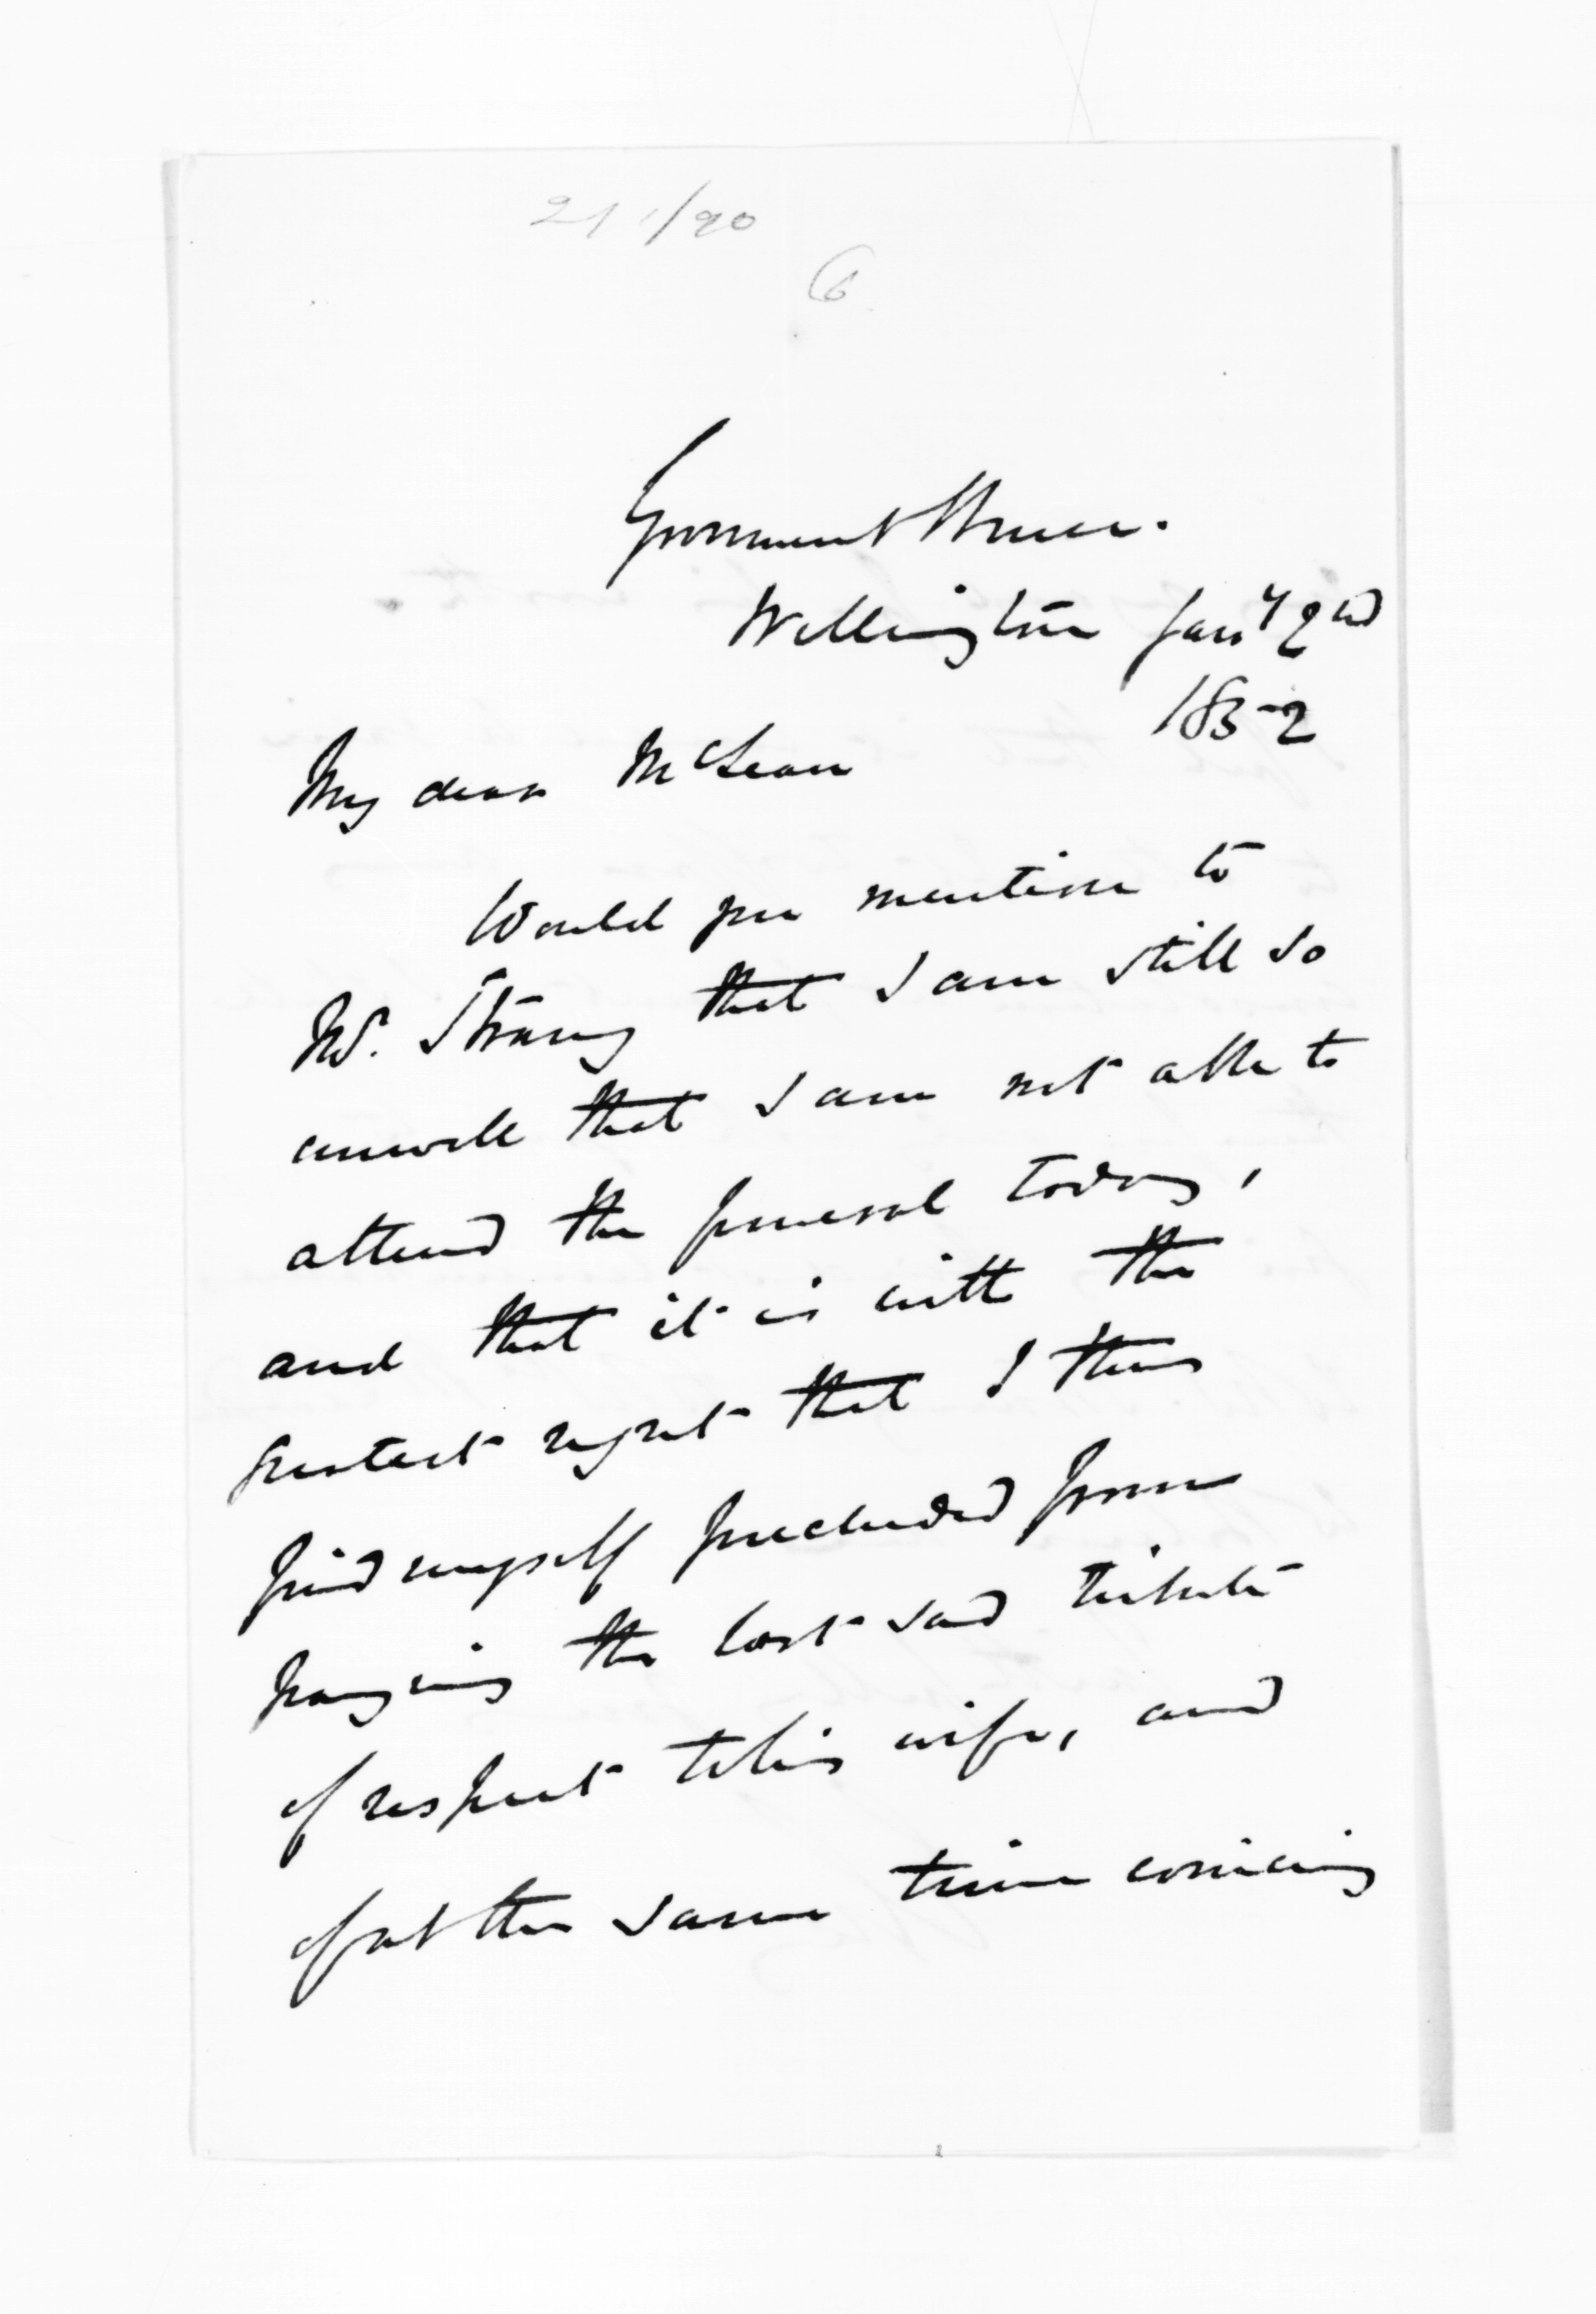 211/90
6
Government House.
Wellington Jany 2nd
1852
My dear McLean
Would you mention to
Mr. Strang that I am still so
unwell that I am not able to
attend the funeral today,
and that it is with the
greatest regret that I thus
find myself precluded from
paying the last sad tribute
of respect to his wife, and
of at the same time